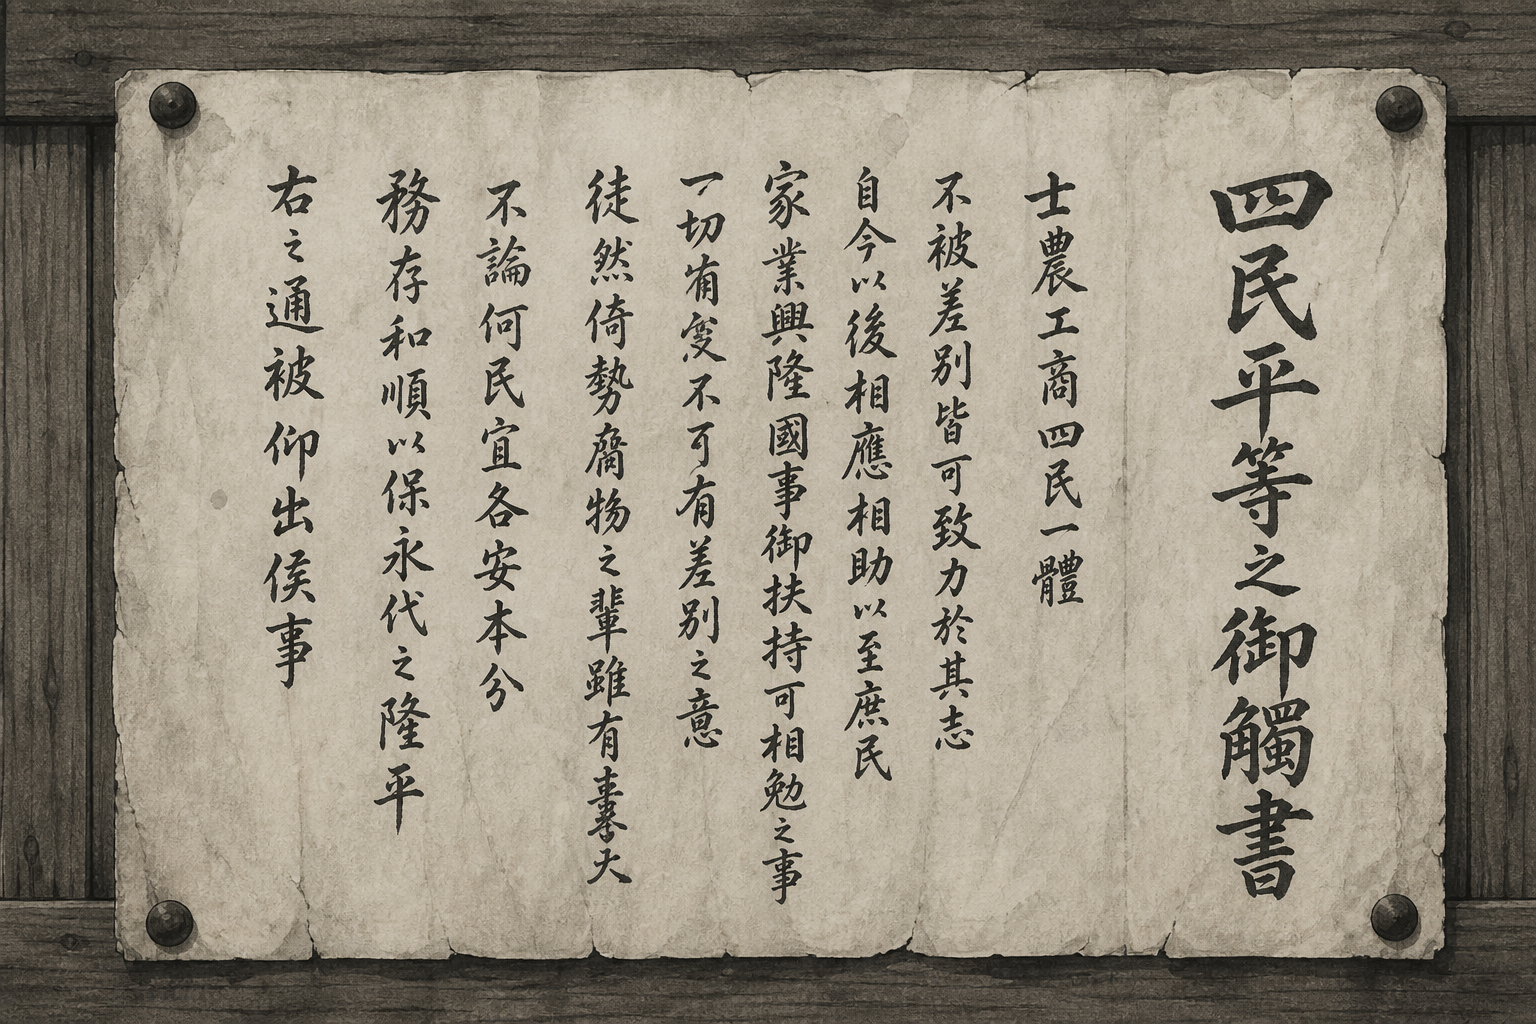 四民平等之御觸書
士農工商四民一體
不被差別皆可致力於其志
自今以後相應相助以至庶民
家業興隆國事御扶持可相勉之事
一切有不可有差別之意
徒然倚勢腐物之輩雖有天
不論何民宜各安本分
務存和順以保永代之隆平
右之通被仰出候事